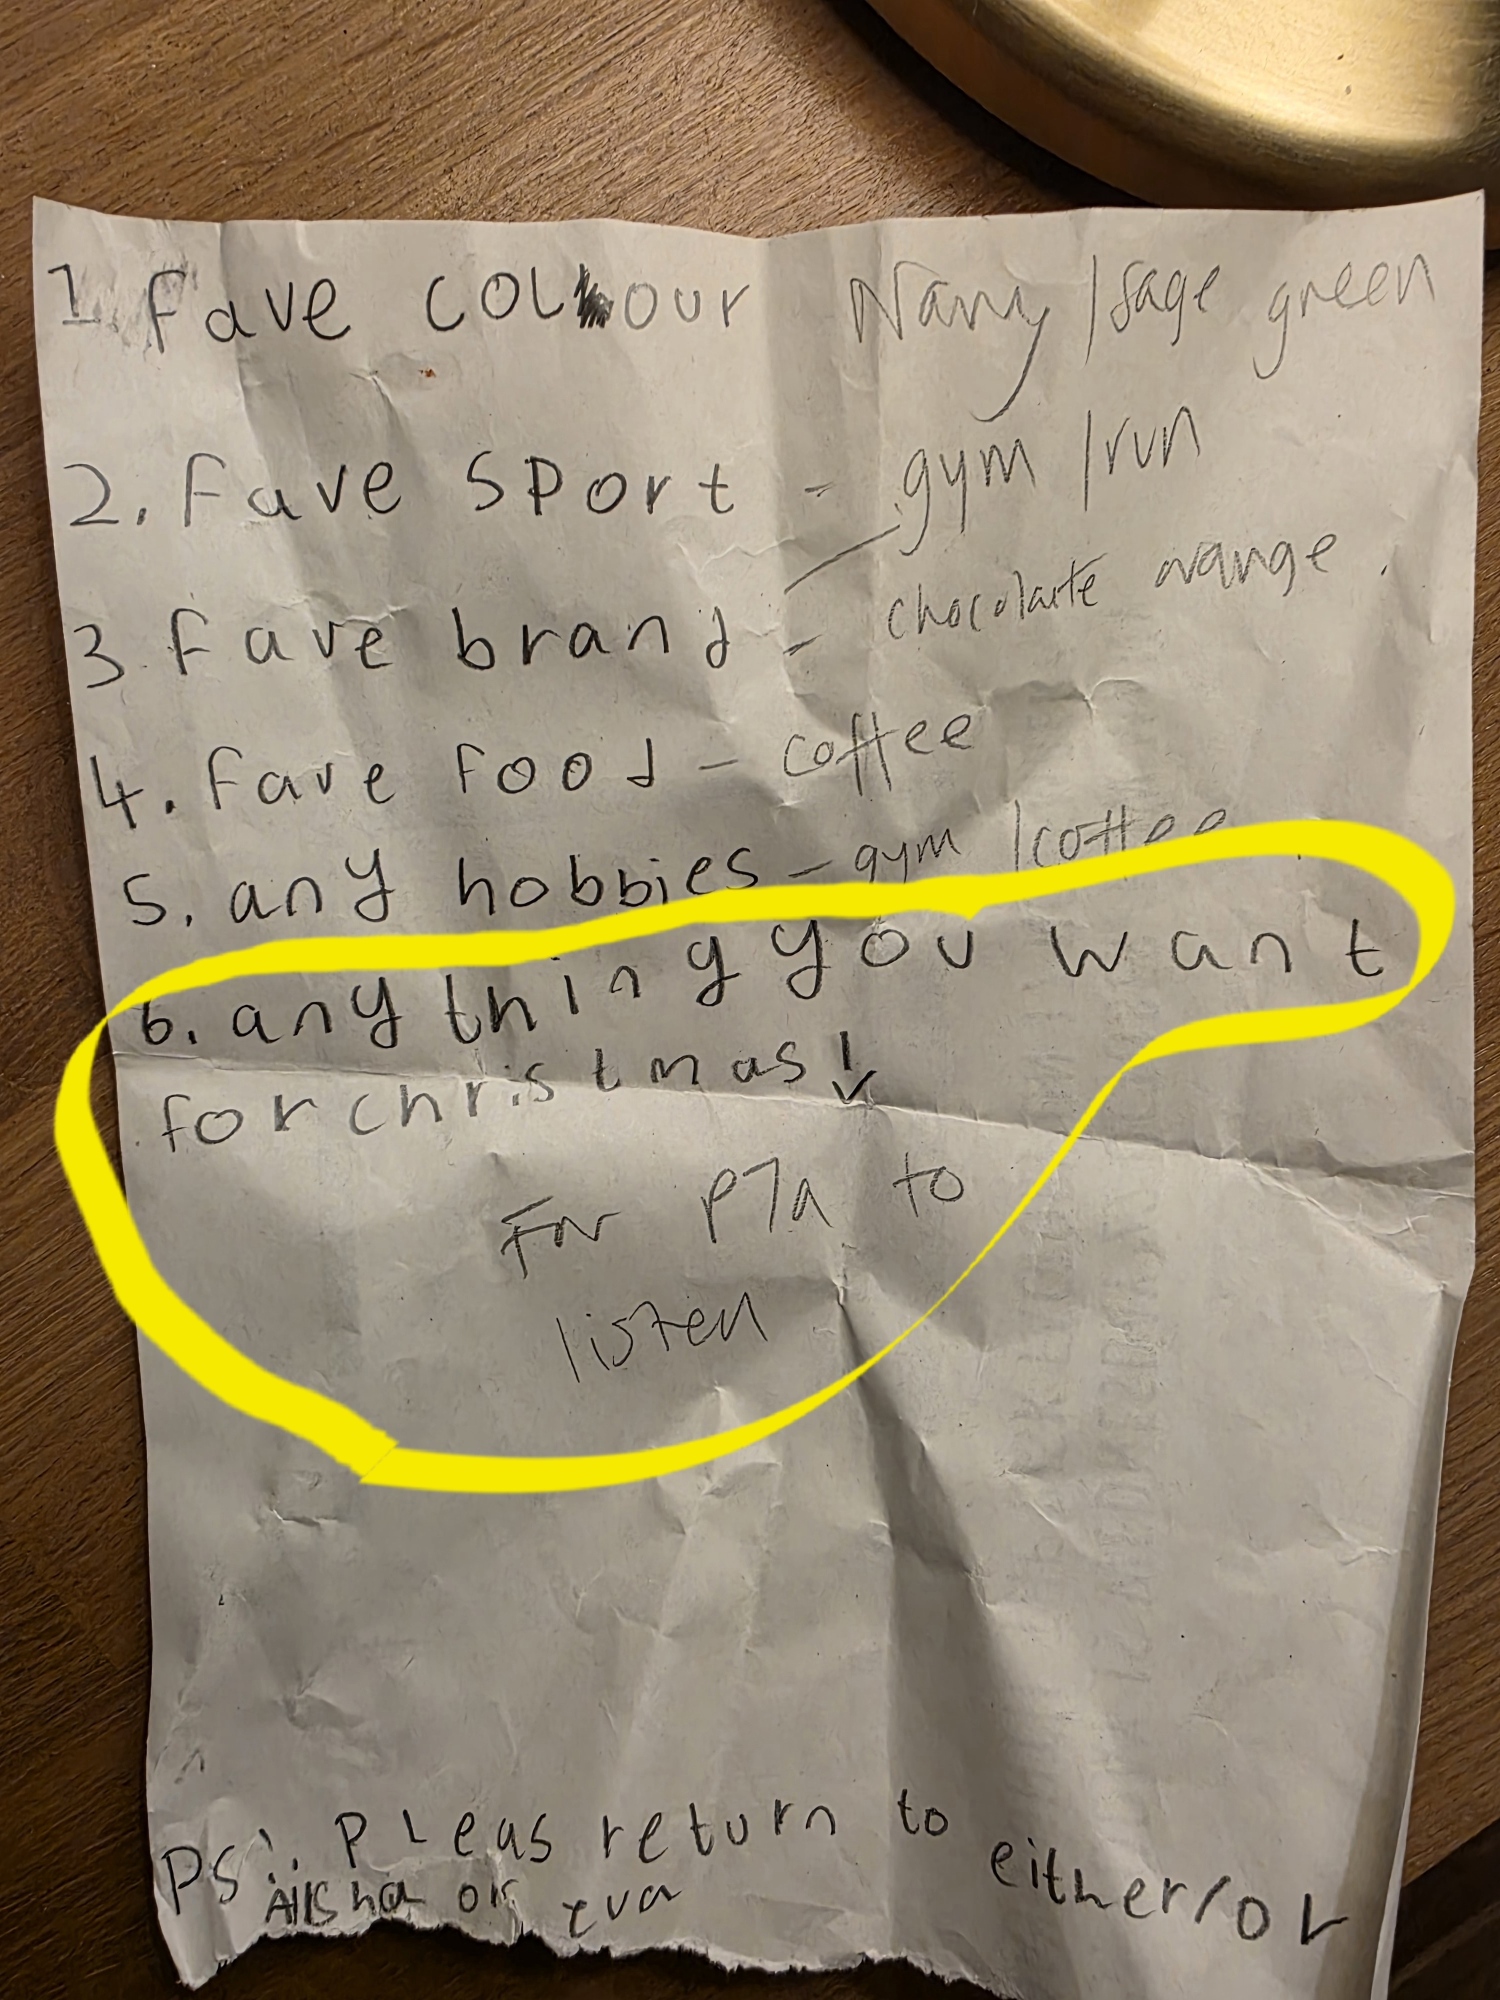 1. Fave colour Navy / sage green
2. Fave sport - gym / run
3 Fave brand - chocolate orange.
4. Fave food - coffee
5. any hobbies - gym / coffee
6. any thing you want
for christmas!
For P7a to
listen
PS: Pleas return to either/or
Ailsha or Eva